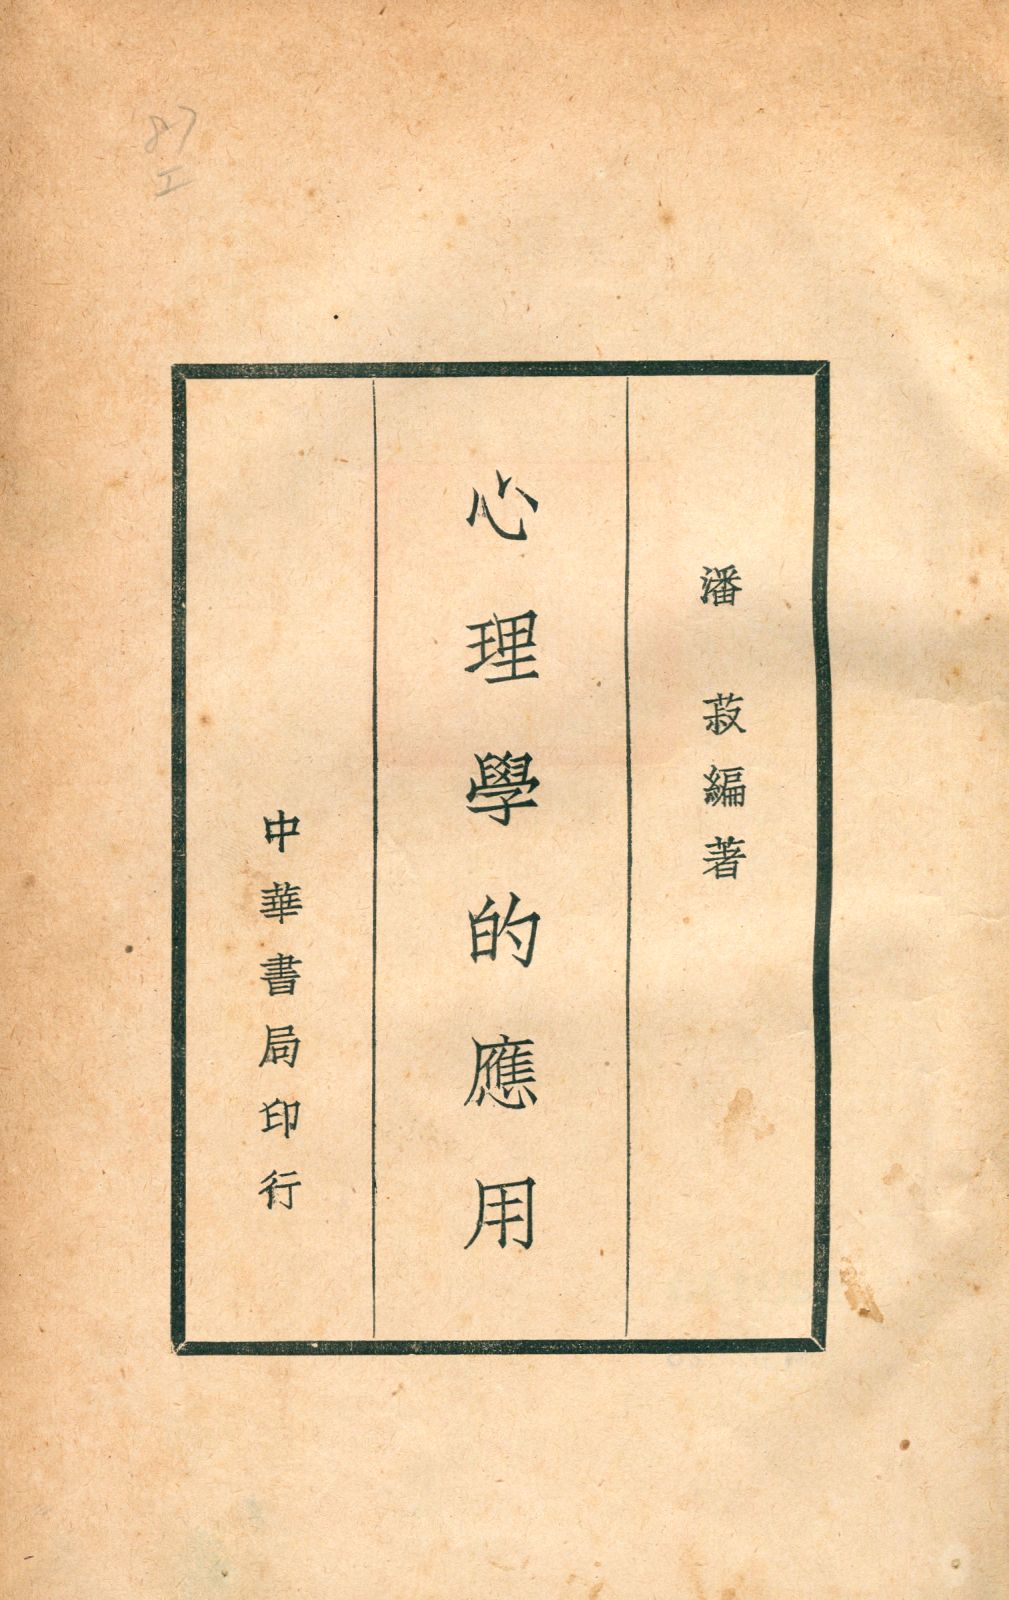 潘菽編著
心理學的應用
中華書局印行
87